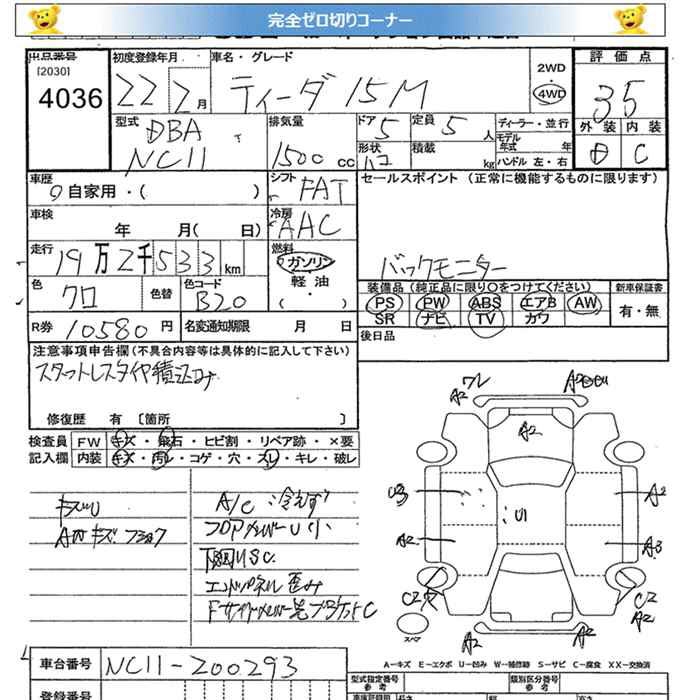 完全ゼロ切りコーナー
出品番号 初度登録年月 車名・グレード 2WD 評価点
[2030]
4036 22 2月 ティーダ 15M 4WD 3.5
型式 排気量 ドア 定員 ディーラー・並行 外装 内装
DBA 5 5人 モデル年式 年
NC11 1500cc 形状 積載 kg ハンドル 左・右 D C
車歴 自家用・( ) シフト FAT セールスポイント (正常に機能するものに限ります)
車検 年 月( 日) 冷房 AAC
走行 19万2千533km 燃料 ガソリン バックモニター
軽油
色 クロ 色替 色コード B20 ・( )
装備品 (純正品に限り○をつけてください) 新車保証書
PS PW ABS エアB AW 有・無
SR ナビ TV カワ
R券 10580円 名変通知期限 月 日 後日品
注意事項申告欄 (不具合内容等は具体的に記入して下さい)
スタットレスタイヤ積込み
修復歴 有 [箇所 ]
検査員 FW キズ・飛石・ヒビ割・リペア跡・×要
記入欄 内装 キズ・汚レ・コゲ・穴・スレ・キレ・破レ
キズU
AWキズ
A/C 冷えず
フロアメンバーU小
下回りSC
エンドパネル歪み
A2
A2
U3
A2
U1
A2
A3
C2
C2
A2
A2
A2
スペア
A-キズ E-エクボ U-凹み W-補修跡 S-サビ C-腐食 XX-交換済
車台番号 NC11-200293
型式指定番号 類別区分番号
参考 参考
登録番号